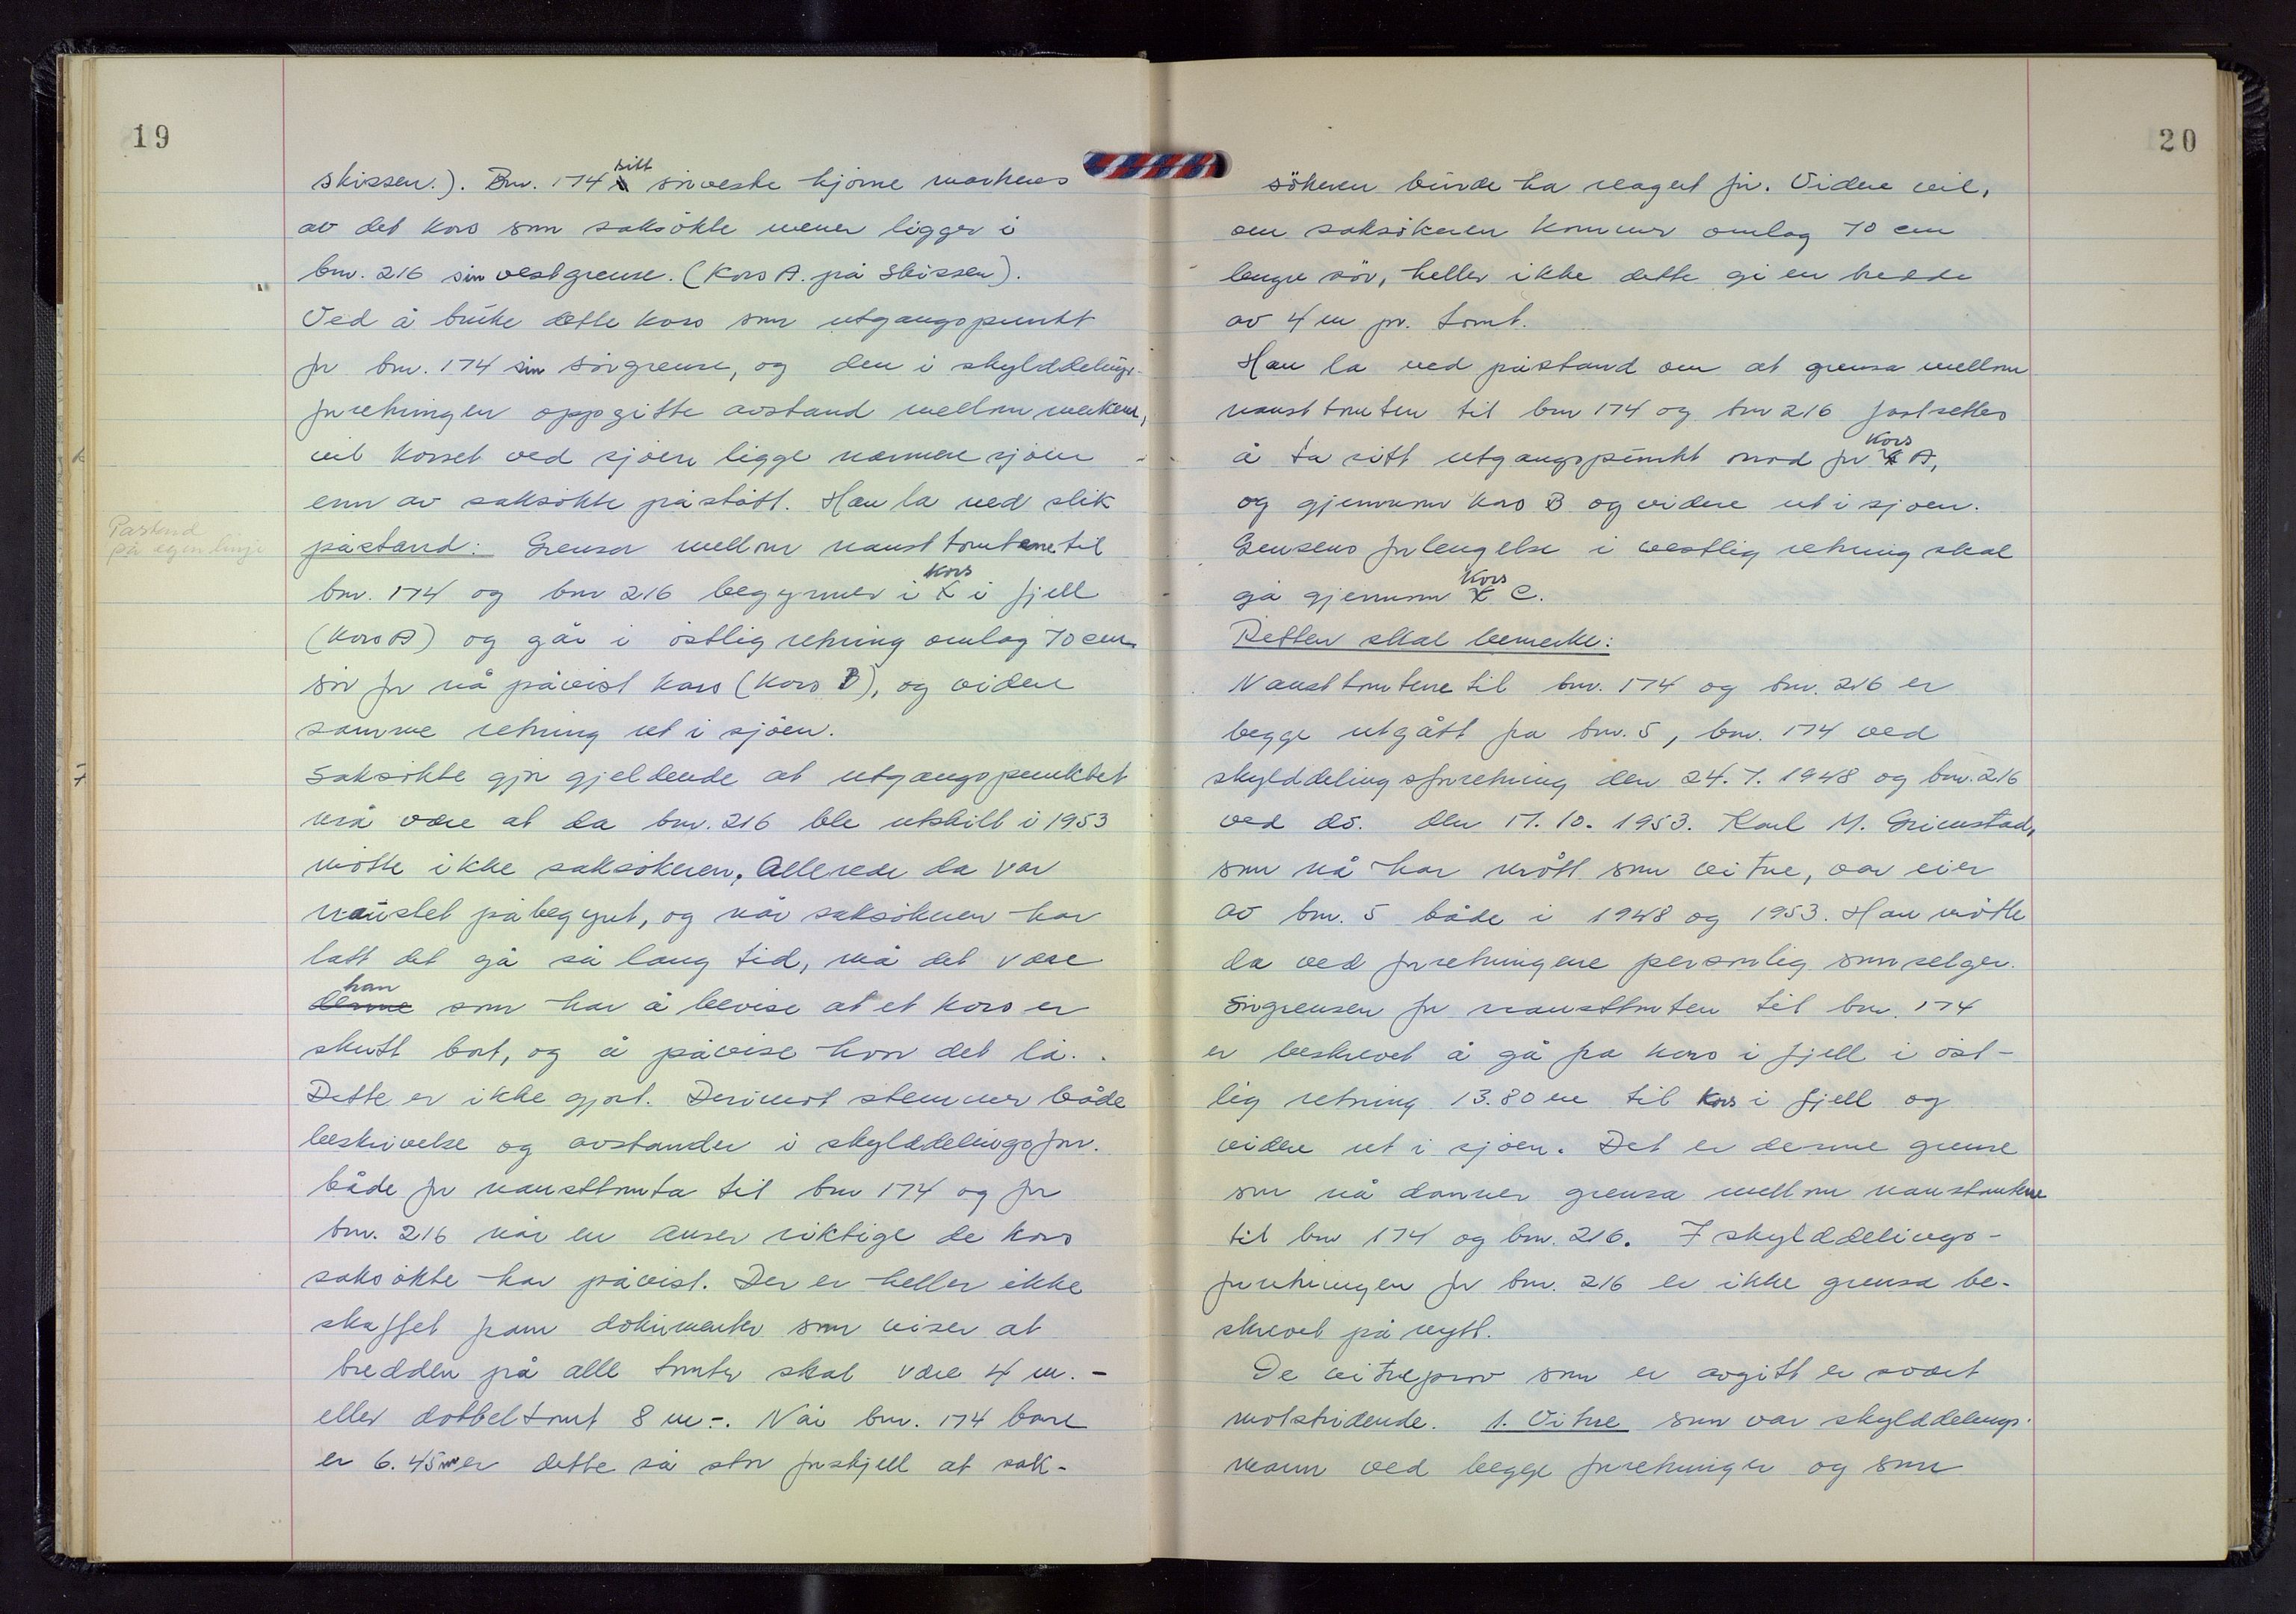 19
skissen.). Bnr. 174 sitt sörveste hjörne markeres
av det kors som saksökte mener ligger i
bnr. 216 sin vestgrense. (Kors A. på Skissen).
Ved å bruke dette kors som utgangspunkt
for bnr. 174 sin sörgrense, og den i skylddelings-
forretningen oppgitte avstand mellom merkene,
vil korset ved sjöen ligge nærmere sjöen
enn av saksökte påstått. Han la ned slik
Påstand
på egen linje
påstand: Grensa mellom nausttomtene til
bnr. 174 og bnr 216 begynner i kors i fjell
(kors A) og går i östlig retning omlag 70 cm
sör for nå påvist kors (kors B), og videre
samme retning ut i sjöen.
Saksökte gjör gjeldende at utgangspunktet
må være at da bnr. 216 ble utskilt i 1953
mötte ikke saksökeren. Allerede da var
naustet påbegynt, og når saksökeren har
latt det gå så lang tid, må det være
denne han som har å bevise at et kors er
skutt bort, og å påvise hvor det lå.
Dette er ikke gjort. Derimot stemmer både
beskrivelse og avstander i skylddelingsforr.
både for nausttomta til bnr 174 og for
bnr. 216 når en anser riktige de kors
saksökte har påvist. Der er heller ikke
skaffet fram dokumenter som viser at
bredden på alle tomter skal være 4 m. -
eller dobbeltomt 8 m -. Når bnr. 174 bare
er 6.45 m er dette så stor forskjell at sak-
20
sökeren burde ha reagert för. Videre vil,
om saksökeren kommer omlag 70 cm
lengre sör, heller ikke dette gi en bredde
av 4 m pr. tomt.
Han la ned påstand om at grensa mellom
nausttomten til bnr 174 og bnr 216 fastsettes
å ta sitt utgangspunkt nord for kors A,
og gjennom kors B og videre ut i sjöen.
Grensens forlengelse i vestlig retning skal
gå gjennom kors C.
Retten skal bemerke:
Nausttomtene til bnr. 174 og bnr. 216 er
begge utgått fra bnr. 5, bnr. 174 ved
skylddelingsforretning den 24.7.1948 og bnr. 216
ved do. den 17.10.1953. Karl M. Grimstad,
som nå har mött som vitne, var eier
av bnr. 5 både i 1948 og 1953. Han mötte
da ved forretningene personlig som selger.
Sörgrensen for nausttomten til bnr. 174
er beskrevet å gå fra kors i fjell i öst-
lig retning 13.80 m til kors i fjell og
videre ut i sjöen. Det er denne grense
som nå danner grensa mellom nausttomtene
til bnr 174 og bnr. 216. I skylddelings-
forretningen for bnr. 216 er ikke grensa be-
skrevet på nytt.
De vitneprov som er avgitt er svært
motstridende. 1. Vitne som var skylddelings-
mann ved begge forretninger og som